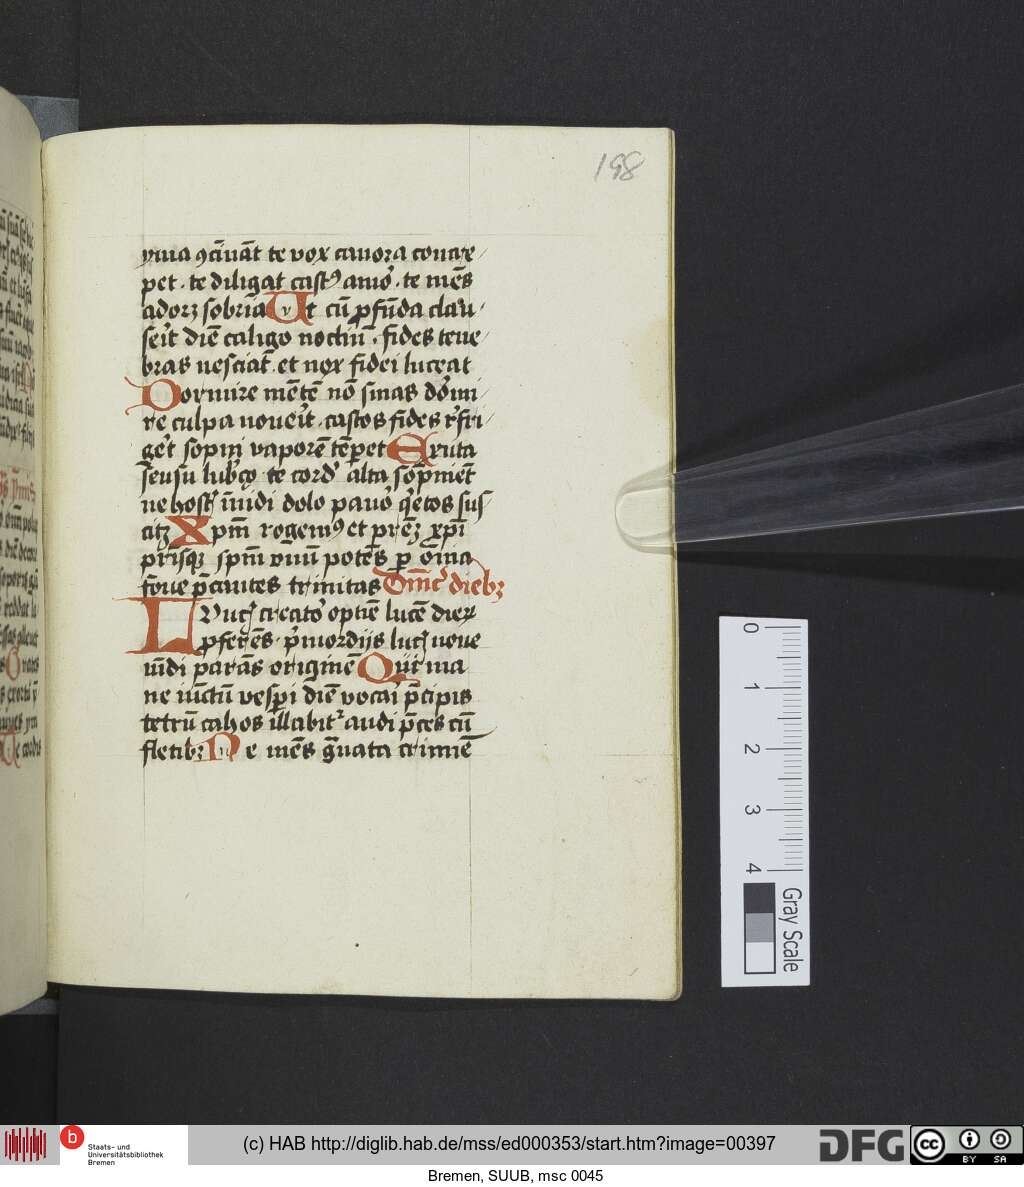 198
yma ꝯcināt te vox canora concre
pet · te diligat castꝰ amoꝛ · te mēs
adorꝫ sobria Ut cū ꝓfūda clau
serit diē caligo noctiū · fides tene
bras nesciat · et nox fidei luceat
Dormire mētē nō sinas doꝛmi
re culpa noverit · castos fides rͤfri
gerͭ sopnī vaporē tēperet Exuta
sensu lubͥco te cordͥ alta sōpniēt
ne hostꝭ īvidi dolo pavoꝛ qͥetos sus
citꝫ Xpm rogemꝰ et prēꝫ xpī
prīsqꝫ spm̄ vnū potēs ꝑ oīa
fove p̄cantes trinitas Dīnicꝭ diebꝫ
Lucꝭ creatoꝛ optīe lucē dieꝝ
ꝓferēs · pͥmordijs lucꝭ nove
mūdi parās originē Qui ma
ne iūctū vesꝑi diē vocaī p̄cipis
tetrū cahos illabitᷣ audi p̄ces cū
fletibꝫ Ne mēs gͣvata crimīe
0 1 2 3 4
Gray Scale
b Staats- und
Universitätsbibliothek
Bremen
(c) HAB http://diglib.hab.de/mss/ed000353/start.htm?image=00397
DFG
cc BY SA
Bremen, SUUB, msc 0045